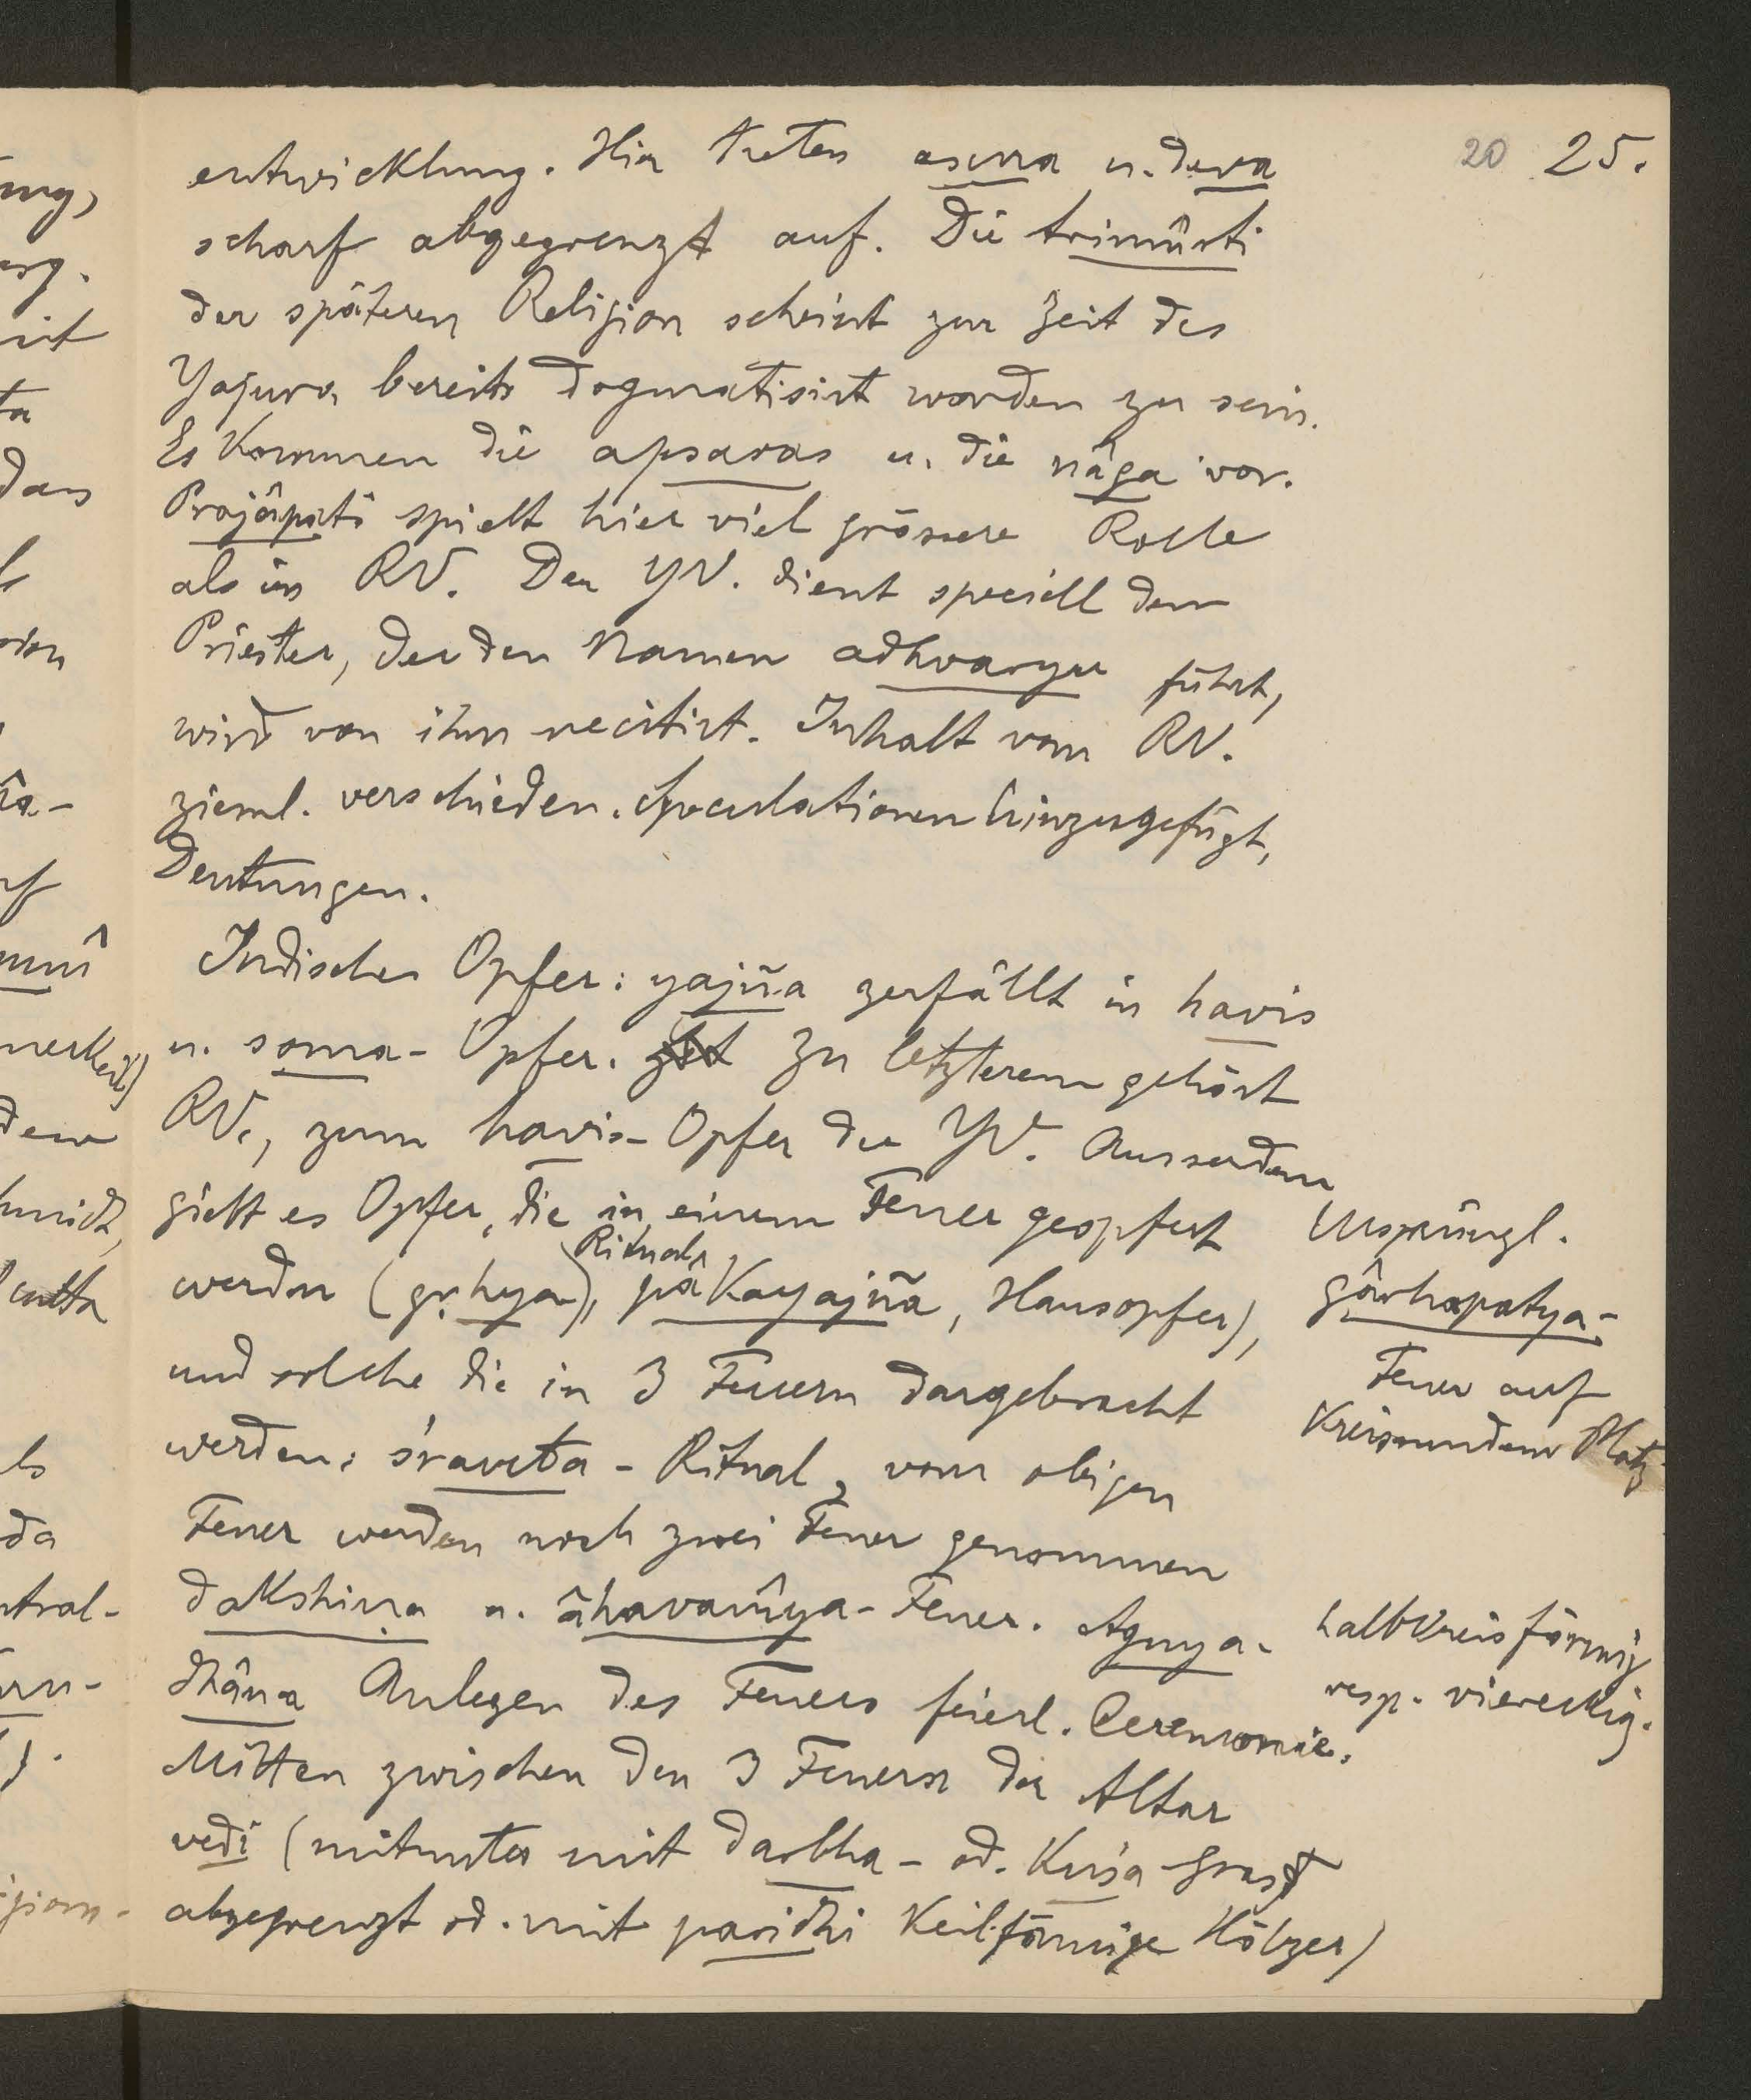 20 25.
entwicklung. Hier treten asura u. deva
scharf abgegrenzt auf. Die trimûrti
der späteren Religion scheint zur Zeit des
Yajurv. bereits dogmatisirt worden zu sein.
Es kommen die apsaras u. die nâga vor.
Prajâpati spielt hier viel grössere Rolle
als im RV. Der YV. dient speciell dem
Priester, der den Namen adhvaryu führt,
wird von ihm recitirt. Inhalt vom RV.
zieml. verschieden. Speculationen hinzugefügt,
Deutungen.
Indisches Opfer: yajña zerfällt in havis
u. soma-Opfer. Zu letzterem gehört
RV., zum havis-Opfer der YV. Ausserdem
giebt es Opfer, die in einem Feuer geopfert
werden (gṛhya) Ritual, pâkayajña, Hausopfer),
und solche die in 3 Feuern dargebracht
werden: śrauta-Ritual, vom obigen
Feuer werden noch zwei Feuer genommen
dakshiṇa u. âhavanîya-Feuer. Agnya-
dhâna Anlegen des Feuers feierl. Ceremonie.
Mitten zwischen den 3 Feuern der Altar
vedi (mitunter mit darbha- od. kuśa-Gras
abgegrenzt od. mit paridhi keilförmige Hölzer)
Ursprüngl.
gârhapatya-
Feuer auf
kreisrundem Platz
halbkreisförmig
resp. viereckig.
ung,
erg.
mit
ta
dass
ls
nî
merk
dem
hmidt,
cutta
ls
da
ntral-
rn-